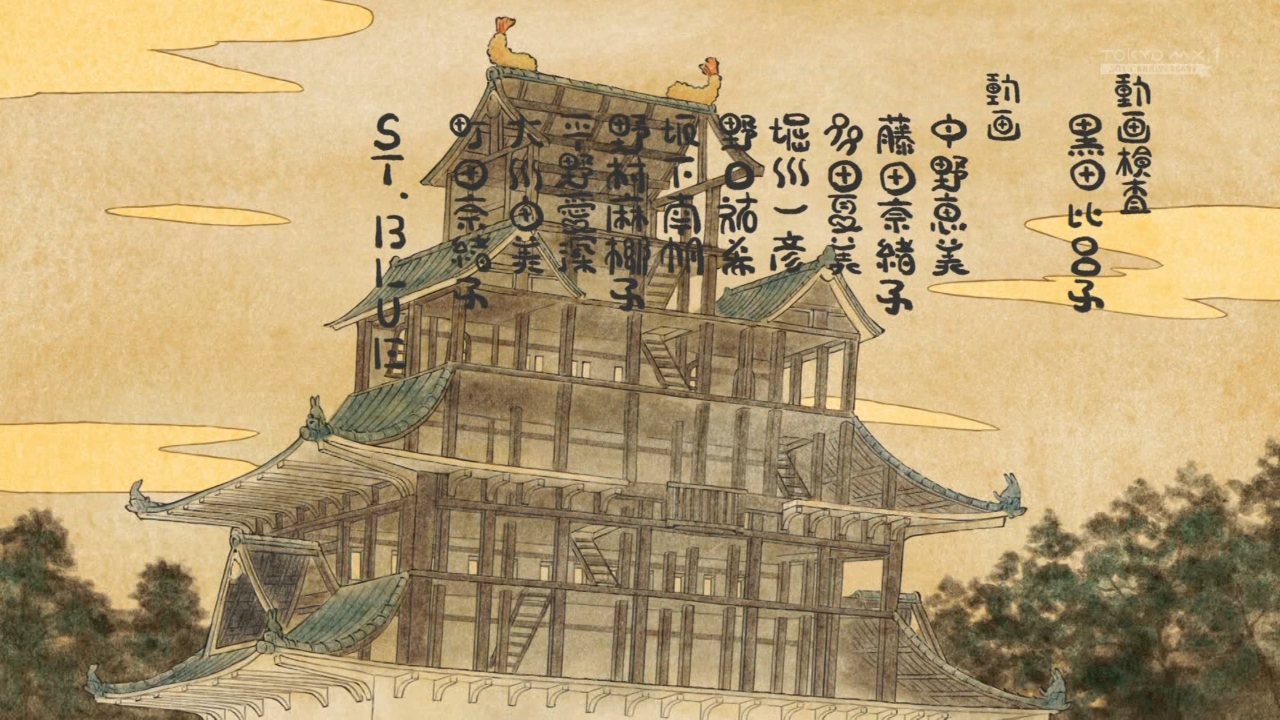 動画検査
黒田比呂子
動画
中野恵美
藤田奈緒子
多田夏美
堀川一彦
野口祐希
坂下南帆
野村麻椰子
平野愛深
大川由美
町田奈緒子
ST.BLUE
TOKYO MX 1